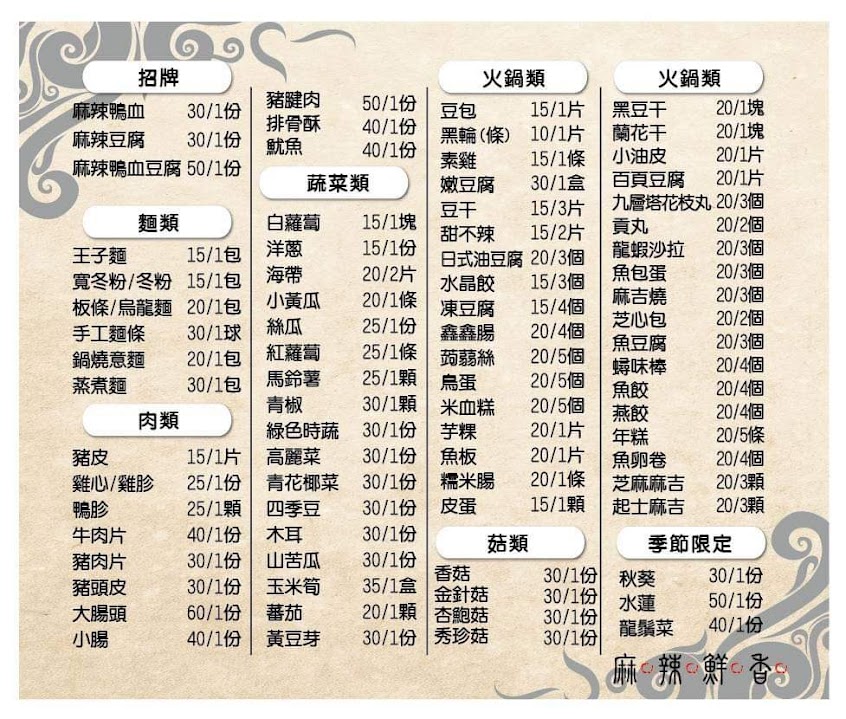 招牌
麻辣鴨血 30/1份
麻辣豆腐 30/1份
麻辣鴨血豆腐 50/1份
麵類
王子麵 15/1包
寬冬粉/冬粉 15/1包
板條/烏龍麵 20/1包
手工麵條 30/1球
鍋燒意麵 20/1包
蒸煮麵 30/1包
肉類
豬皮 15/1片
雞心/雞胗 25/1份
鴨胗 25/1顆
牛肉片 40/1份
豬肉片 30/1份
豬頭皮 30/1份
大腸頭 60/1份
小腸 40/1份
豬腱肉 50/1份
排骨酥 40/1份
魷魚 40/1份
蔬菜類
白蘿蔔 15/1塊
洋蔥 15/1份
海帶 20/2片
小黃瓜 20/1條
絲瓜 25/1份
紅蘿蔔 25/1條
馬鈴薯 25/1顆
青椒 30/1顆
綠色時蔬 30/1份
高麗菜 30/1份
青花椰菜 30/1份
四季豆 30/1份
木耳 30/1份
山苦瓜 30/1份
玉米筍 35/1盒
蕃茄 20/1顆
黃豆芽 30/1份
火鍋類
豆包 15/1片
黑輪(條) 10/1片
素雞 15/1條
嫩豆腐 30/1盒
豆干 15/3片
甜不辣 15/2片
日式油豆腐 20/3個
水晶餃 15/3個
凍豆腐 15/4個
鑫鑫腸 20/4個
蒟蒻絲 20/5個
鳥蛋 20/5個
米血糕 20/5個
芋粿 20/1片
魚板 20/1片
糯米腸 20/1條
皮蛋 15/1顆
菇類
香菇 30/1份
金針菇 30/1份
杏鮑菇 30/1份
秀珍菇 30/1份
火鍋類
黑豆干 20/1塊
蘭花干 20/1塊
小油皮 20/1片
百頁豆腐 20/1片
九層塔花枝丸 20/3個
貢丸 20/2個
龍蝦沙拉 20/3個
魚包蛋 20/3個
麻吉燒 20/3個
芝心包 20/2個
魚豆腐 20/3個
蟳味棒 20/4個
魚餃 20/4個
燕餃 20/4個
年糕 20/5條
魚卵卷 20/4個
芝麻麻吉 20/3顆
起士麻吉 20/3顆
季節限定
秋葵 30/1份
水蓮 50/1份
龍鬚菜 40/1份
麻辣鮮香